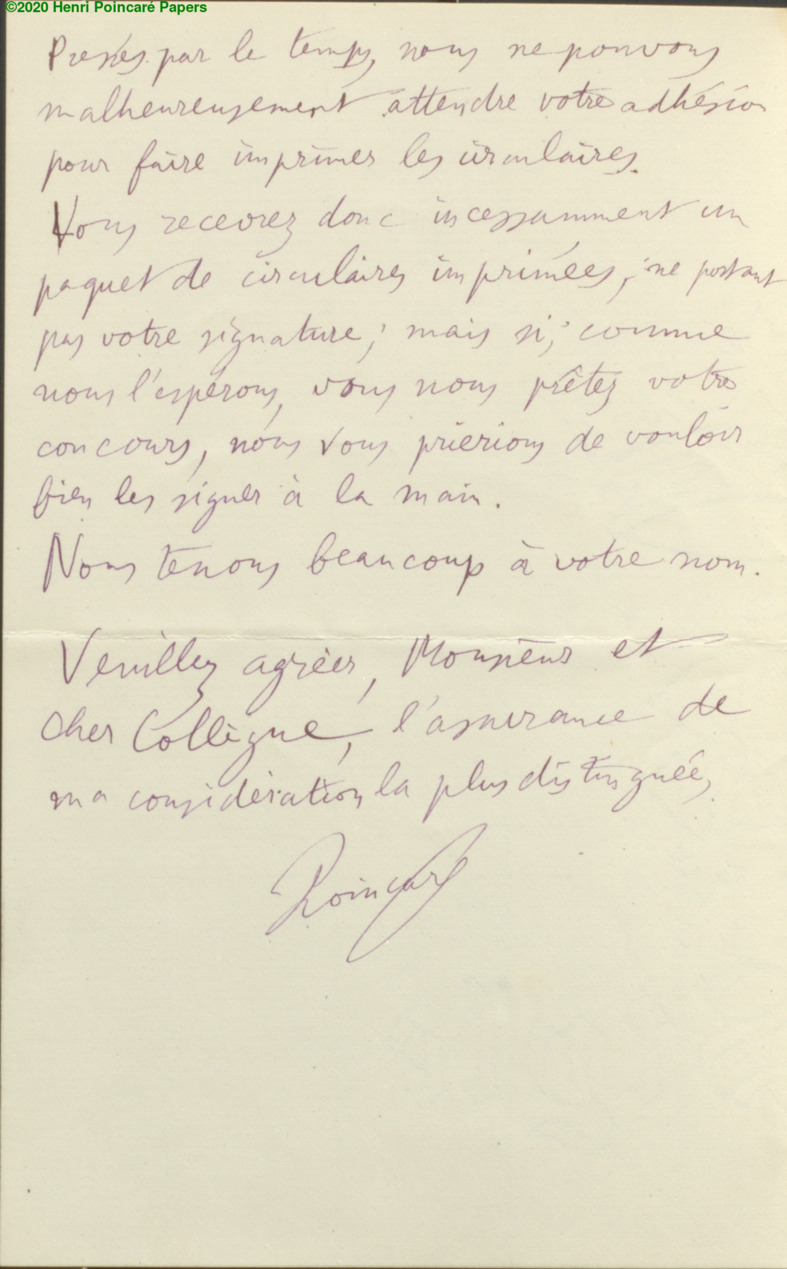 ©2020 Henri Poincaré Papers
Pressés par le temps, nous ne pouvons
malheureusement attendre votre adhésion
pour faire imprimer les circulaires.
Vous recevrez donc incessamment un
paquet de circulaires imprimées, ne portant
pas votre signature; mais si, comme
nous l'espérons, vous nous prêtez votre
concours, nous vous prierions de vouloir
bien les signer à la main.
Nous tenons beaucoup à votre nom.
Veuillez agréer, Monsieur et
cher Collègue, l'assurance de
ma considération la plus distinguée,
Poincaré